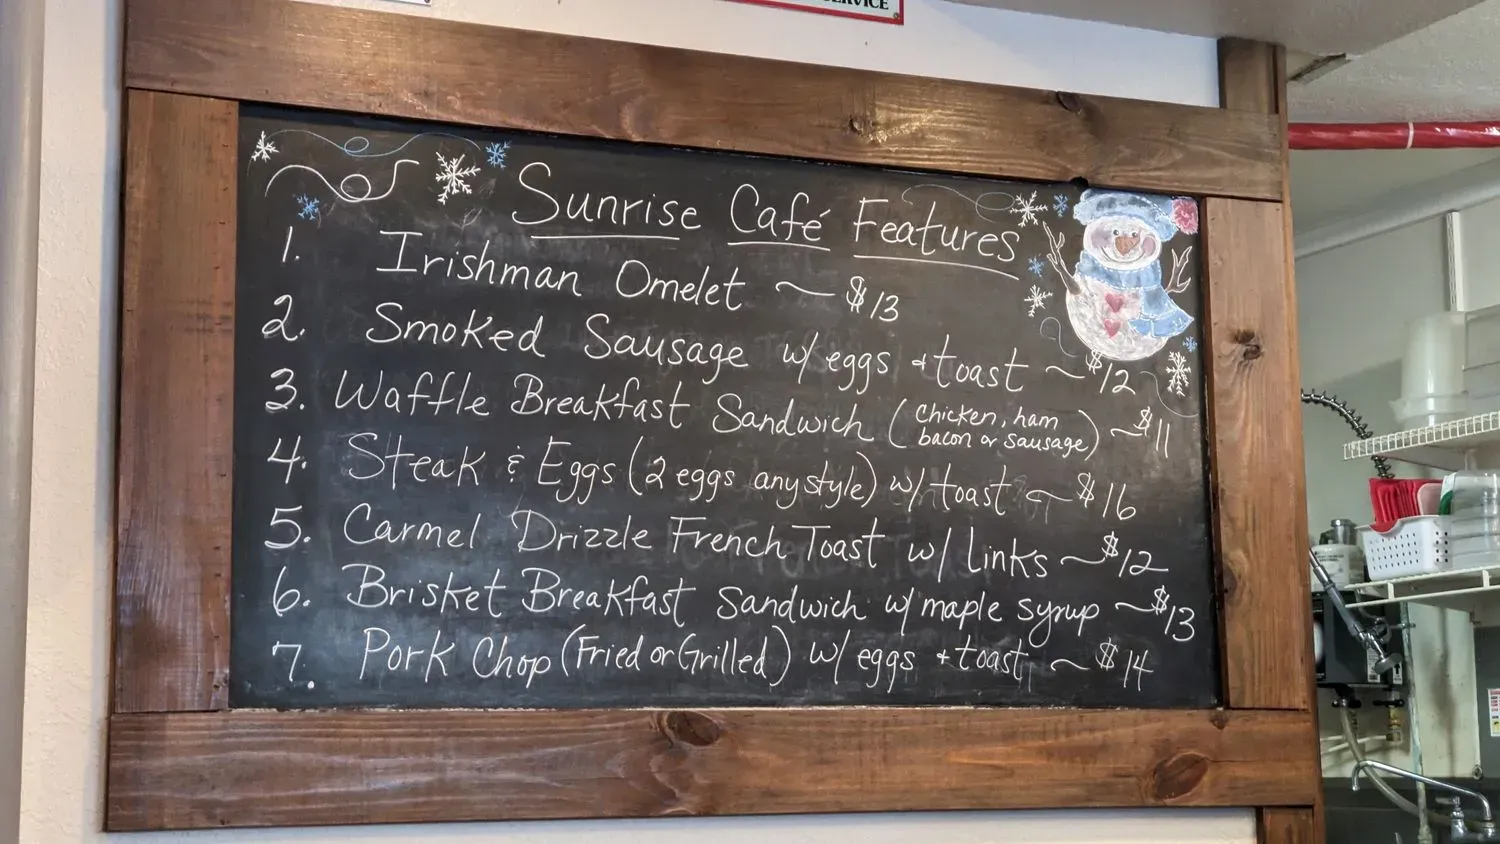 SERVICE
Sunrise Café Features
1. Irishman Omelet ~ $13
2. Smoked Sausage w/ eggs + toast ~ $12
3. Waffle Breakfast Sandwich (chicken, ham
bacon or sausage) ~ $11
4. Steak & Eggs (2 eggs any style) w/ toast ~ $16
5. Carmel Drizzle French Toast w/ Links ~ $12
6. Brisket Breakfast Sandwich w/ maple syrup ~ $13
7. Pork Chop (Fried or Grilled) w/ eggs + toast ~ $14